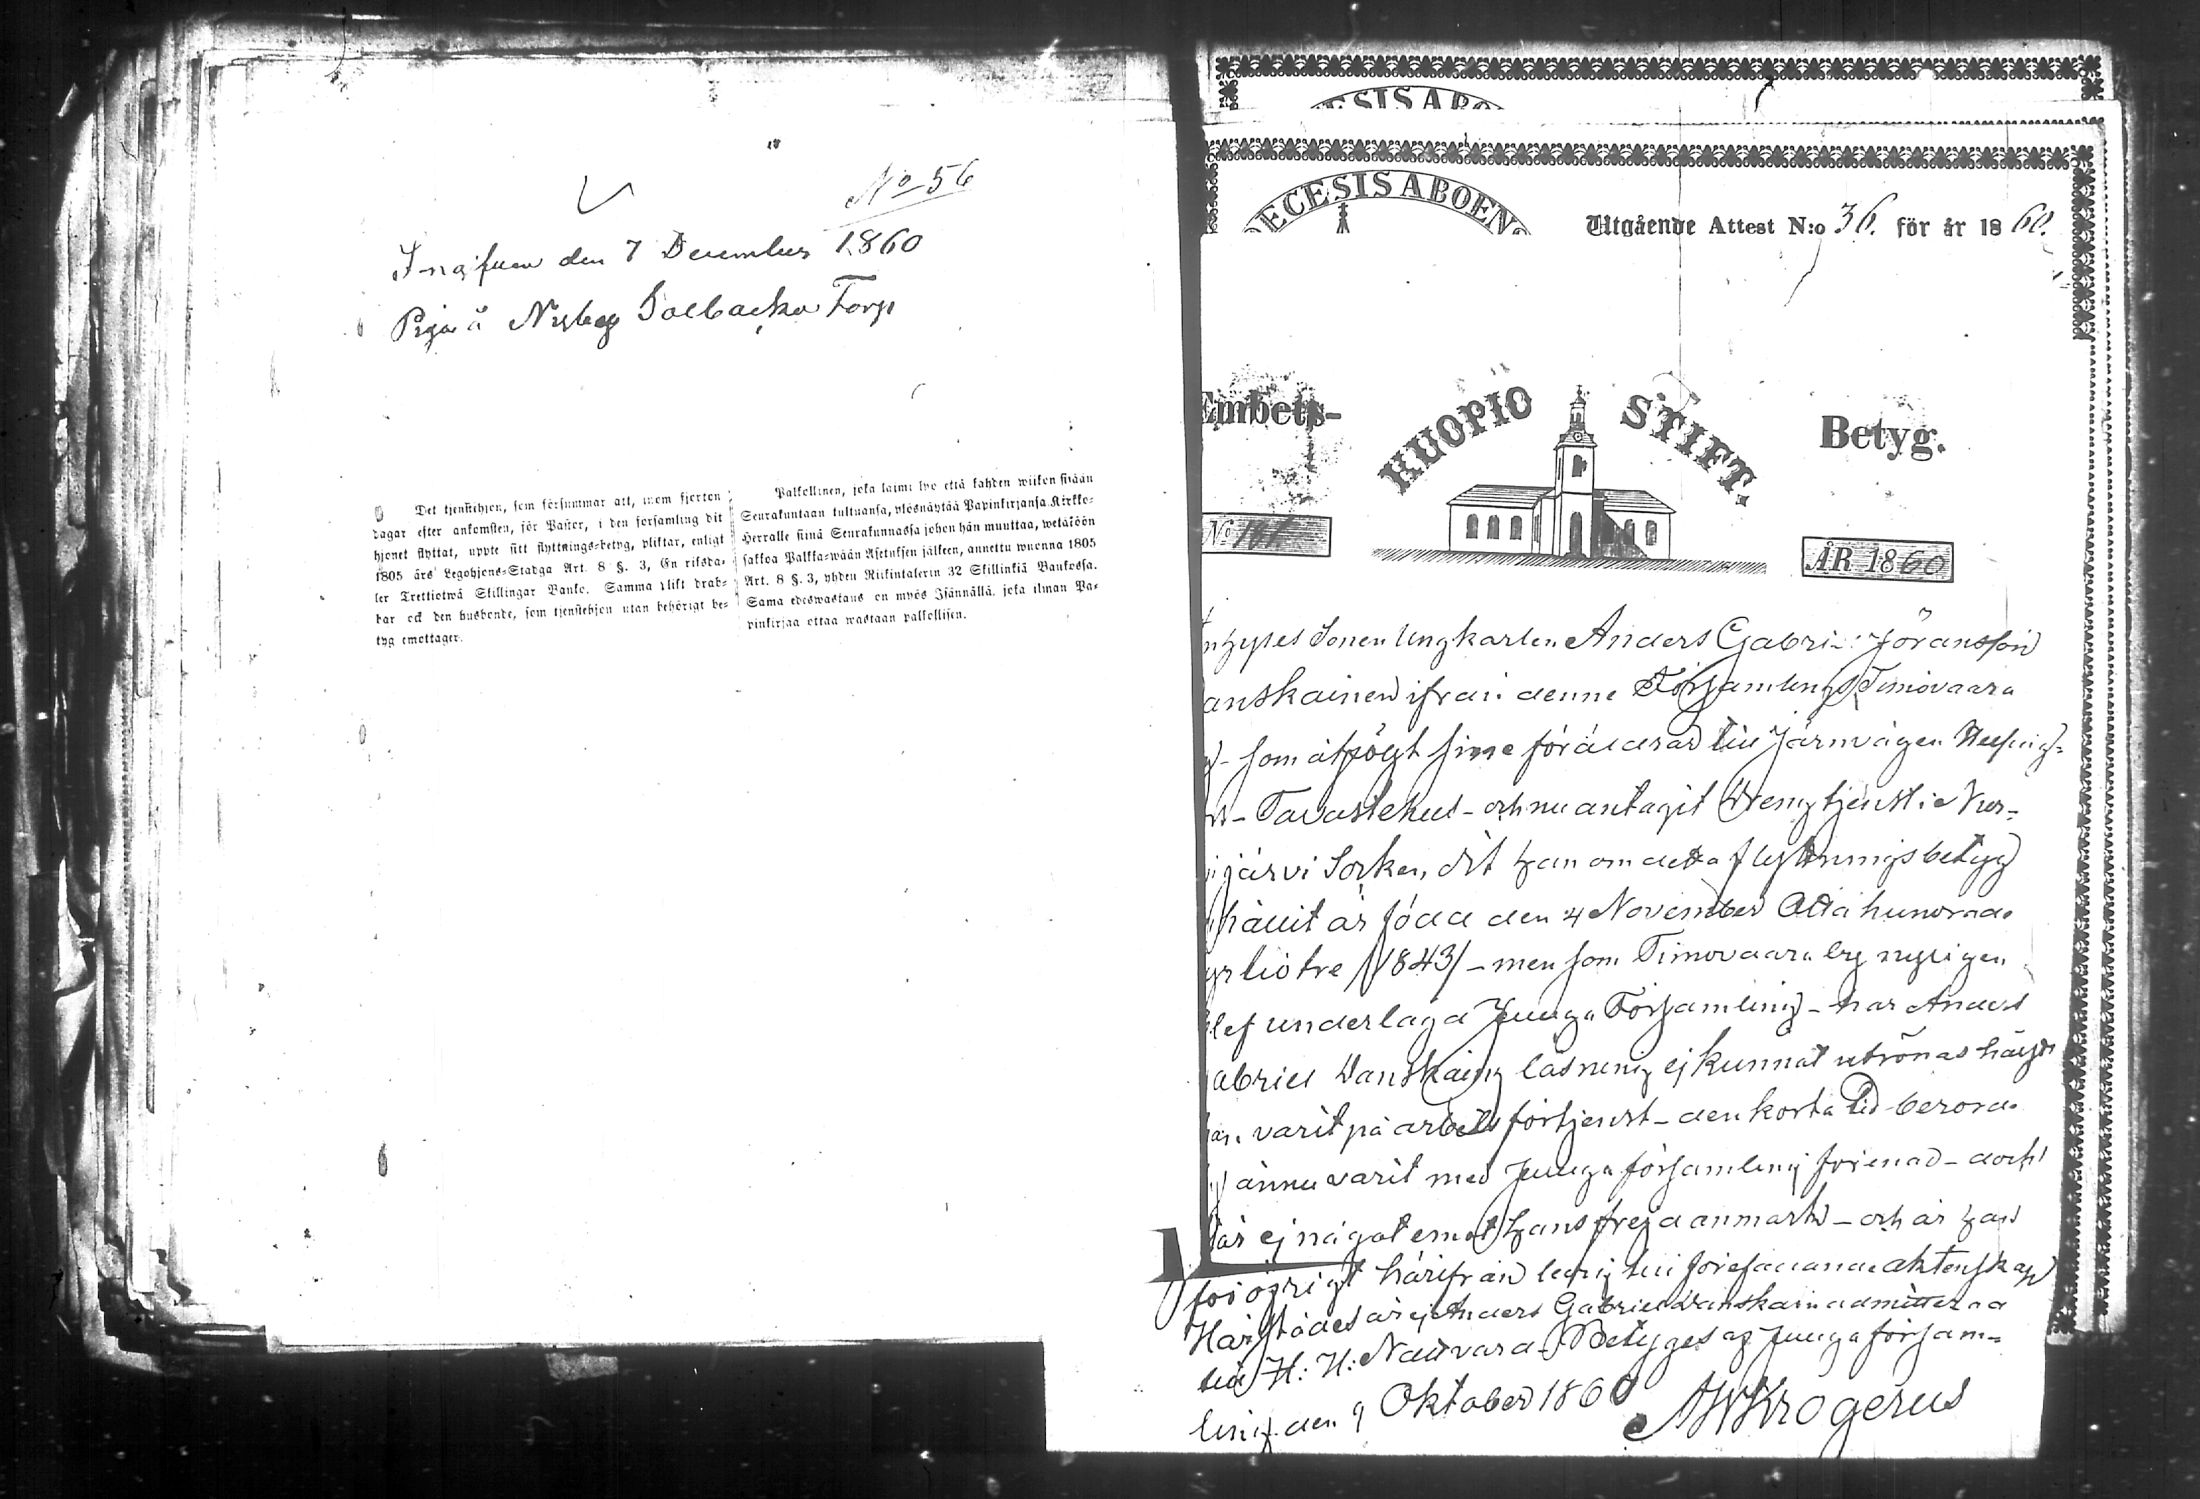 No 56
Ingifven den 7 December 1860
Piga å Nyby Torp
Det tjenstehjon, som försummar att, inom fjorton
dagar efter ankomsten, för Pastor, i den församling dit
hjonet flyttat, uppte sitt flyttnings=betyg, pliktar, enligt
1805 års Legohjons=Stadga Art. 8 §. 3, En riksda=
ler Trettiotwå Skillingar Banko. Samma plikt drab=
bar ock den husbonde, som tjenstehjon utan behörigt be=
tyg emottager.
Palkollinen, joka laimi lyö että kahden wiikon sisään
Seurakuntaan tultuansa, ylösnäytää Papinkirjansa Kirkko=
Herralle siinä Seurakunnassa johon hän muuttaa, wetäköön
sakkoa Palkka=wään Asetuksen jälkeen, annettu wuonna 1805
Art. 8 §. 3, yhden Riikintalerin 32 Skillinkiä Bankossa.
Sama edeswastaus on myös Isännällä, joka ilman Pa=
pinkirjaa ottaa wastaan palkollisen.
ECESIS ABO
DECESIS ABOEN
Utgående Attest N:o 36. för år 1860.
Embets-
KUOPIO STIFT.
Betyg.
No
ÅR 1860
Sonen Ungkarlen Anders Gabri: Jöransson
anskainen ifrån denne Församlings Timovaara
som åtföljt sine föräldrar till Järnvägen Helsing=
Tavastehus - och nu antagit Drengtjenst i Nur=
mijärvi Socken, dit han om detta flyttningsbetyg
anhållit är född den 4 November Adertonhundrade
fyrtiotre /1843/ - men som Timovaara by nyligen
blef underlagd Juuga Församling - har Anders
Gabriel Vanskains läsning ej kunnat utrönas
han varit på arbetsförtjenst - den korta tid berörde
by ännu varit med Juuga församling förenad - dock
är ej något emot hans frejd anmärkt - och är han
för öfrigt härifrån ledig till förefallande äktenskap
Härstädes är ej Anders Gabriel Vanskain admitterad
till H: H: Nattvard. Betyges af Juuga församling=
ling den 9 Oktober 1860
Krogerus